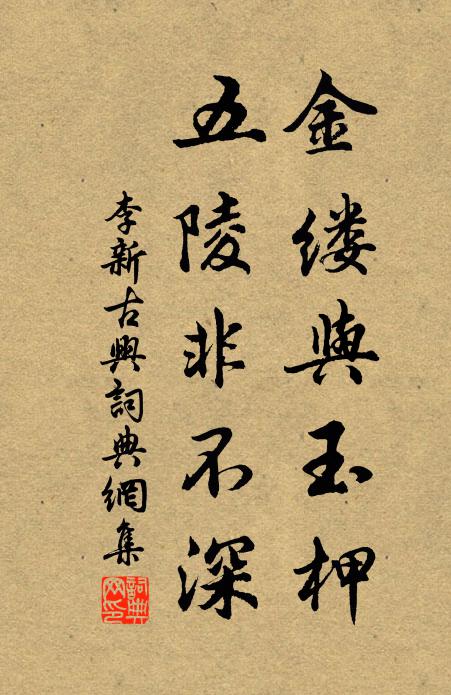 金缕與玉柙
五陵非不深
李新古興詞典網集
詞典网印